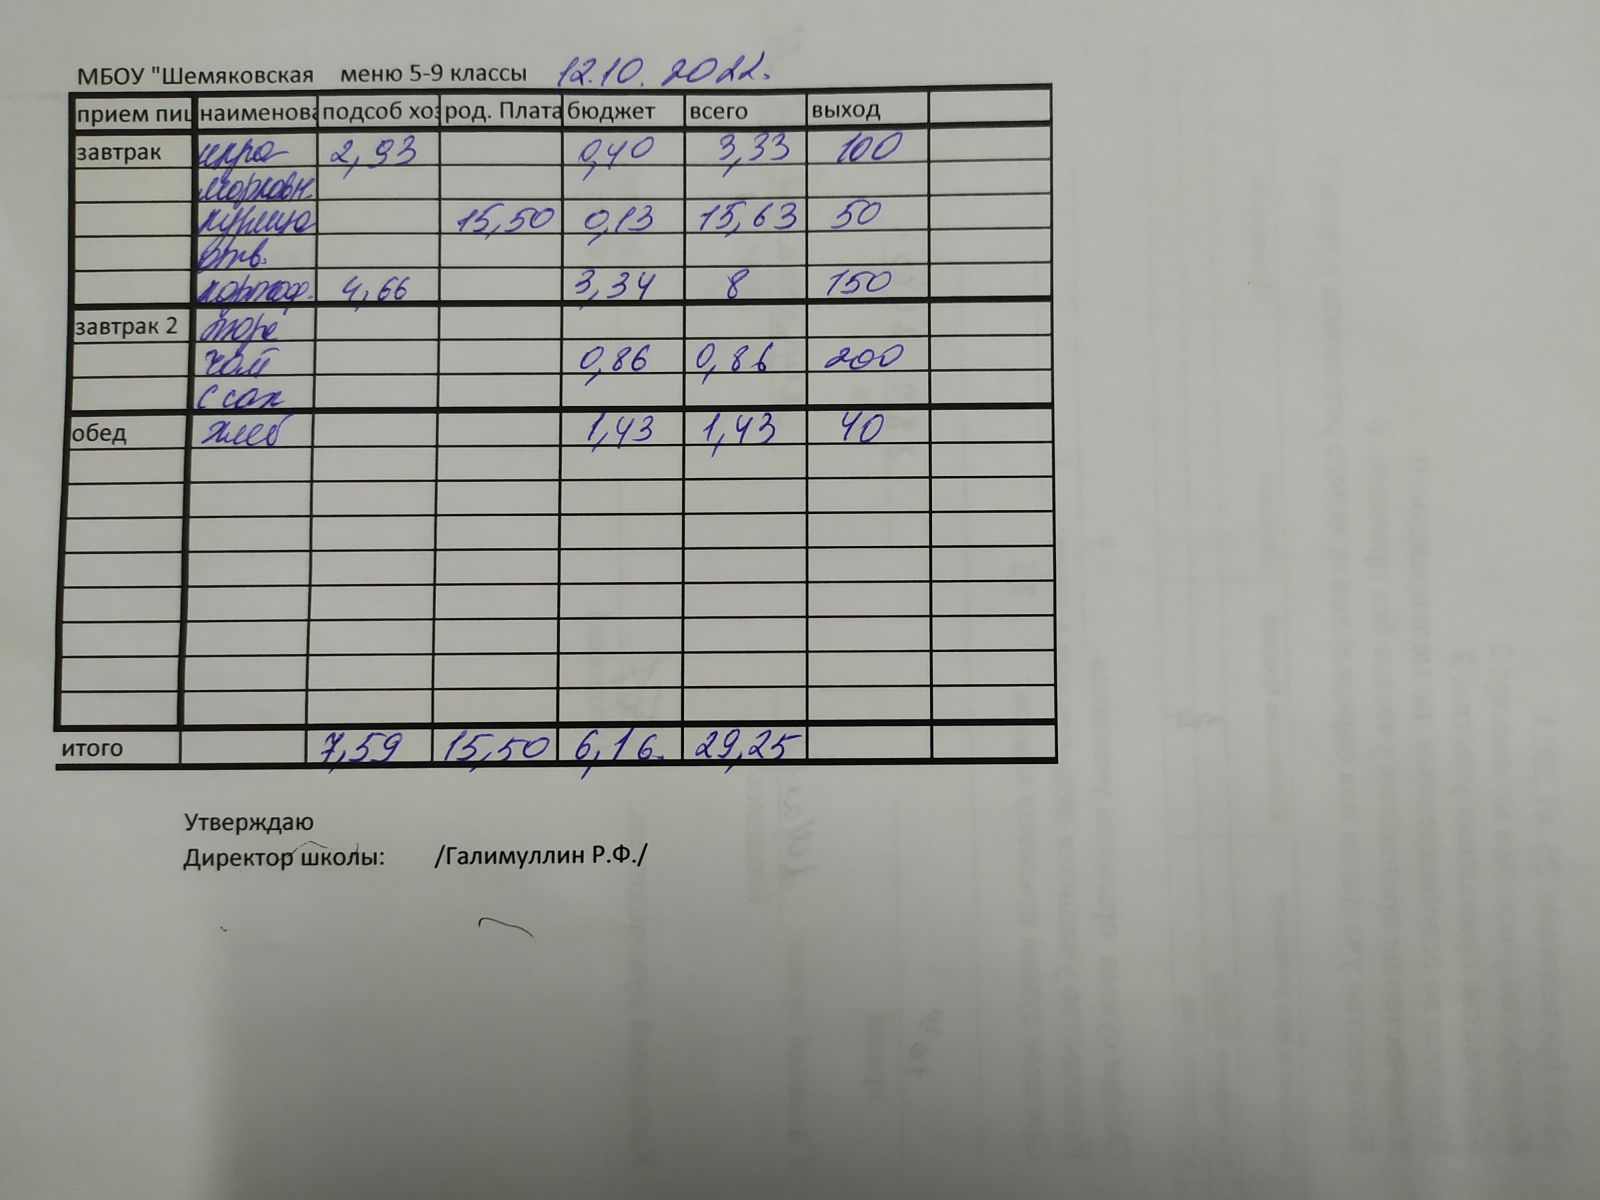 МБОУ "Шемяковская меню 5-9 классы 12.10.2022.
прием пищ наименова подсоб хоз род. Плата бюджет всего выход
завтрак икра 2,93 0,40 3,33 100
морковн.
курица 15,50 0,13 15,63 50
отв.
картоф. 4,66 3,34 8 150
завтрак 2 пюре
чай 0,86 0,86 200
с сах
обед хлеб 1,43 1,43 40
итого 7,59 15,50 6,16 29,25
Утверждаю
Директор школы: /Галимуллин Р.Ф./